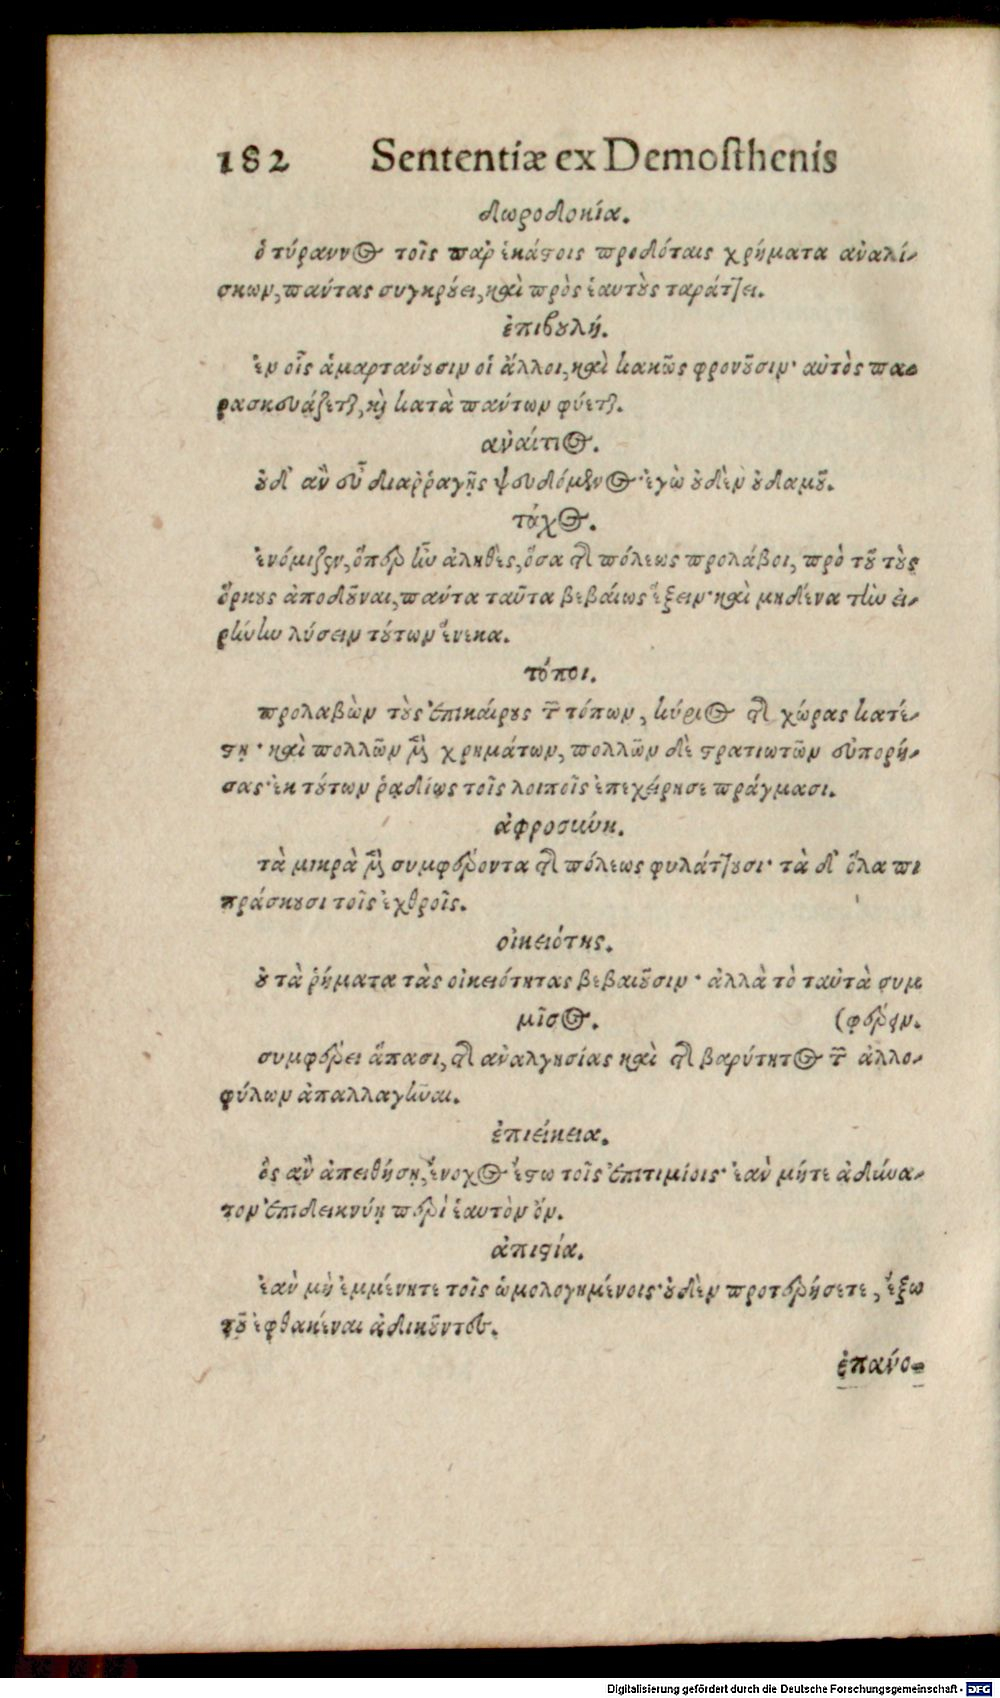 182 Sententiæ ex Demoſthenis
δωροδοκία.
ὁ τύραννος τοῖς παρ' ἑκάστοις προδόταις χρήματα ἀναλί-
σκων, πάντας συγκρύει, καὶ πρὸς ἑαυτοὺς ταράττει.
ἐπιβουλή.
ἐν οἷς ἁμαρτάνουσιν οἱ ἄλλοι, καὶ κακῶς φρονοῦσιν· αὐτὸς πα-
ρασκευάζεται, καὶ κατὰ πάντων φύεται.
ἀναίτιος.
οὐδ' ἂν σὺ διαῤῥαγῇς ψευδόμενος· ἐγὼ οὐδὲν οὐδαμοῦ.
τάχος.
ἐνόμιζεν, ὅπερ ἦν ἀληθὲς, ὅσα τῆς πόλεως προλάβοι, πρὸ τοῦ τοὺς
ὅρκους ἀποδοῦναι, πάντα ταῦτα βεβαίως ἕξειν· καὶ μηδένα τὴν εἰ-
ρήνην λύσειν τούτων ἕνεκα.
τόποι.
προλαβὼν τοὺς ἐπικαίρους τῶν τόπων, κύριος τῆς χώρας κατέ-
στη· καὶ πολλῶν μὲν χρημάτων, πολλῶν δὲ στρατιωτῶν εὐπορή-
σας· ἐκ τούτων ῥᾳδίως τοῖς λοιποῖς ἐπεχείρησε πράγμασι.
ἀφροσύνη.
τὰ μικρὰ μὲν συμφέροντα τῆς πόλεως φυλάττουσι· τὰ δ' ὅλα πι
πράσκουσι τοῖς ἐχθροῖς.
οἰκειότης.
οὐ τὰ ῥήματα τὰς οἰκειότητας βεβαιοῦσιν· ἀλλὰ τὸ ταὐτὰ συμ
μῖσος. (φέρειν.
συμφέρει ἅπασι, τῆς ἀναλγησίας καὶ τῆς βαρύτητος τῶν ἀλλο-
φύλων ἀπαλλαγῆναι.
ἐπιείκεια.
ὃς ἂν ἀπειθήσῃ, ἔνοχος ἔστω τοῖς ἐπιτιμίοις· ἐὰν μήτε ἀδύνα-
τον ἐπιδεικνύῃ περὶ ἑαυτὸν ὄν.
ἀπιστία.
ἐὰν μὴ ἐμμένητε τοῖς ὡμολογημένοις· οὐδὲν προτερήσετε, ἔξω
τοῦ ἐφθακέναι ἀδικοῦντες.
ἐπανο-
Digitalisierung gefördert durch die Deutsche Forschungsgemeinschaft - DFG